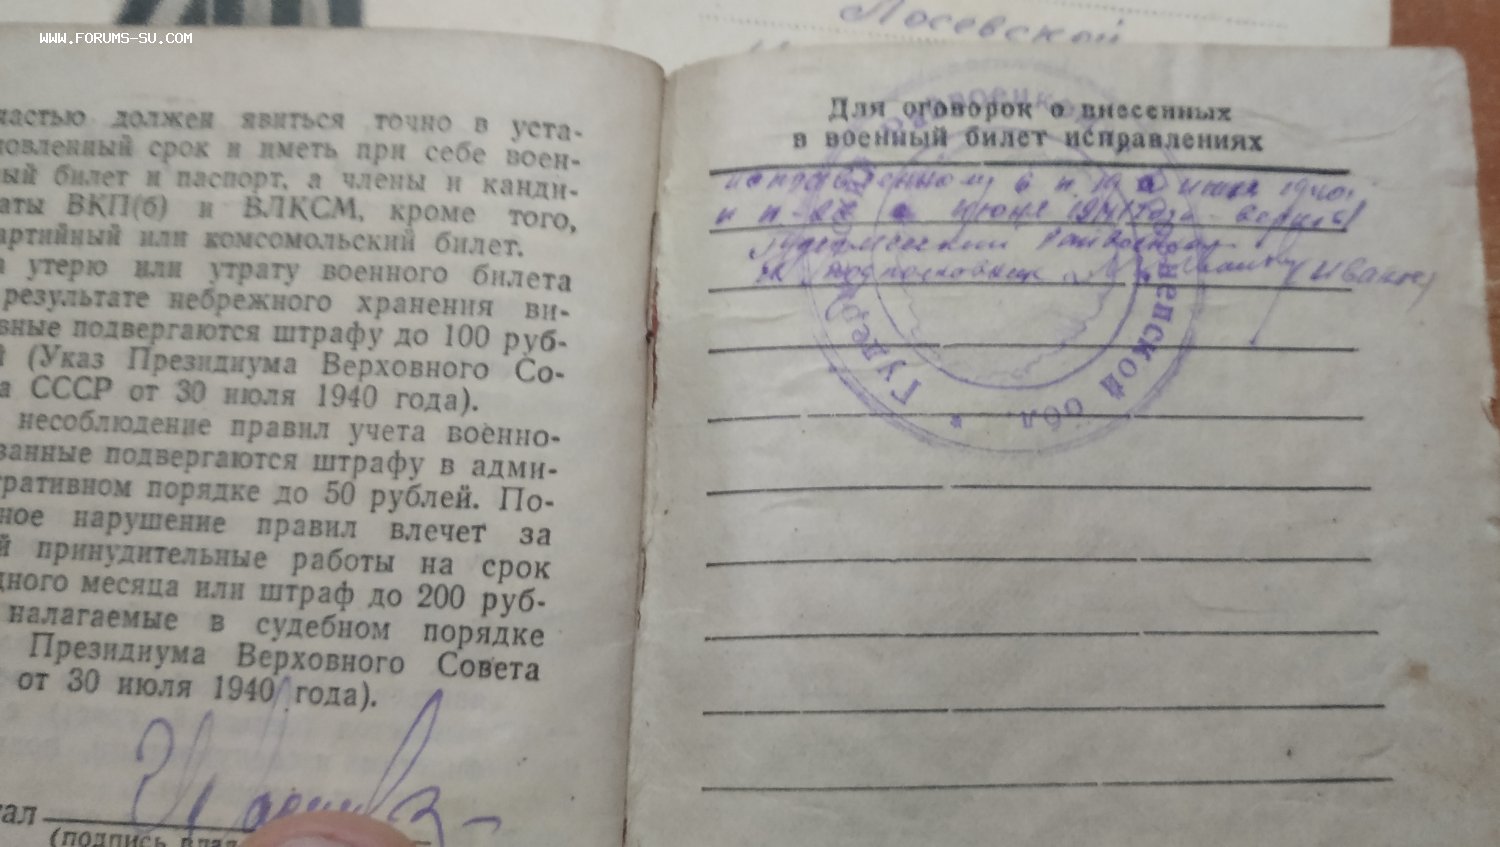 WWW.FORUMS-SU.COM
Лосевской
частью должен явиться точно в уста-
новленный срок и иметь при себе воен-
ный билет и паспорт, а члены и канди-
даты ВКП(б) и ВЛКСМ, кроме того,
партийный или комсомольский билет.
утерю или утрату военного билета
результате небрежного хранения ви-
вные подвергаются штрафу до 100 руб-
й (Указ Президиума Верховного Со-
а СССР от 30 июля 1940 года).
несоблюдение правил учета военно-
занные подвергаются штрафу в адми-
тративном порядке до 50 рублей. По-
ное нарушение правил влечет за
й принудительные работы на срок
дного месяца или штраф до 200 руб-
налагаемые в судебном порядке
Президиума Верховного Совета
от 30 июля 1940 года).
тал
(подпись влад
Для оговорок о внесенных
в военный билет исправлениях
июня 1941 года верить
Гудермесский Райвоенком
подполковник (Иванов)
обл.